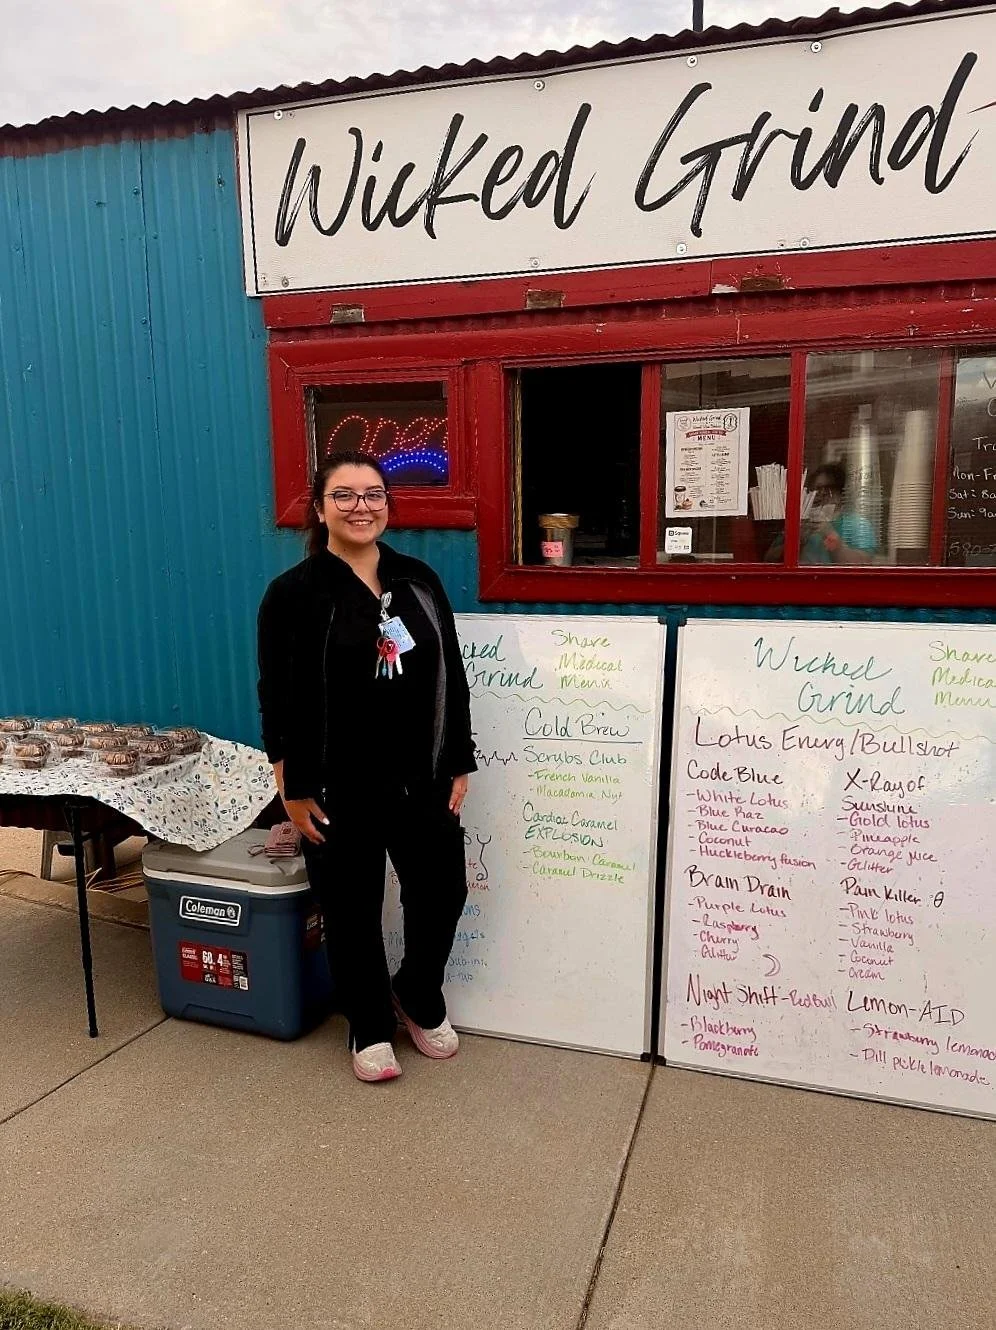 Wicked Grind
Open
Wicked Grind
MENU
Square
Mon-F
Sat: 8a
Sun: 9a
580-
Grind
Share
Medical
Menu
Cold Brew
Scrubs Club
- French Vanilla
- Macadamia Nut
Cardiac Caramel
EXPLOSION
- Bourbon Caramel
- Caramel Drizzle
Wicked
Grind
Share
Medica
Menu
Lotus Energy/Bullshot
Code Blue
- White Lotus
- Blue Raz
- Blue Curacao
- Coconut
- Huckleberry fusion
Brain Drain
- Purple Lotus
- Raspberry
- Cherry
- Glitter
Night Shift - Red Bull
- Blackberry
- Pomegranate
X-Ray of
Sunshine
- Gold lotus
- Pineapple
- Orange juice
- Glitter
Pain Killer
- Pink lotus
- Strawberry
- Vanilla
- Coconut
- Cream
Lemon-AID
- Strawberry lemonad
- Dill pickle lemonade
Coleman
60 4